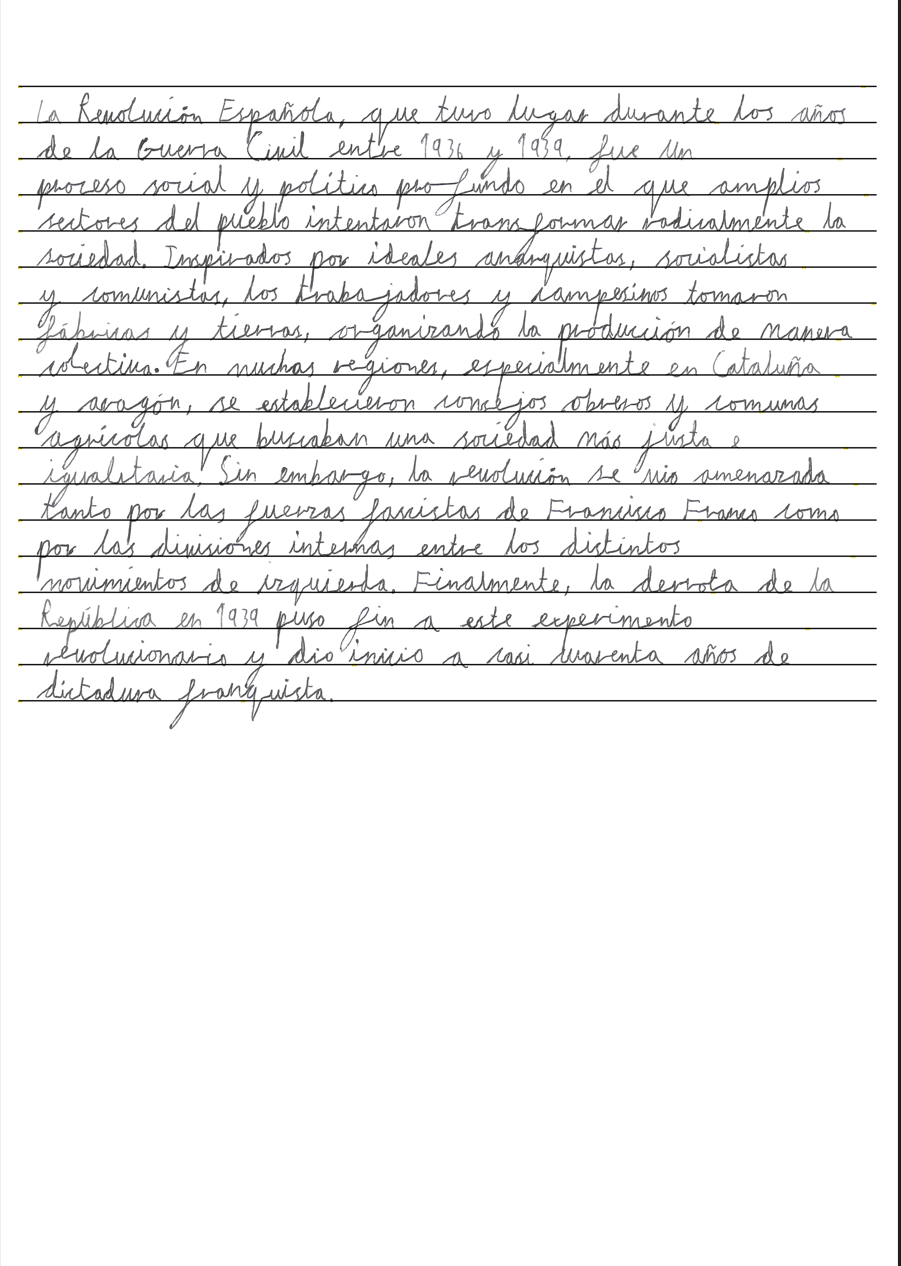 La Revolución Española, que tuvo lugar durante los años
de la Guerra Civil entre 1936 y 1939, fue un
proceso social y político profundo en el que amplios
sectores del pueblo intentaron transformar radicalmente la
sociedad. Inspirados por ideales anarquistas, socialistas
y comunistas, los trabajadores y campesinos tomaron
fábricas y tierras, organizando la producción de manera
colectiva. En muchas regiones, especialmente en Cataluña
y aragón, se establecieron concejos obreros y comunas
agrícolas que buscaban una sociedad más justa e
igualitaria. Sin embargo, la revolución se vio amenazada
tanto por las fuerzas fascistas de Francisco Franco como
por las divisiones internas entre los distintos
movimientos de izquierda. Finalmente, la derrota de la
República en 1939 puso fin a este experimento
revolucionario y dio inicio a casi cuarenta años de
dictadura franquista.